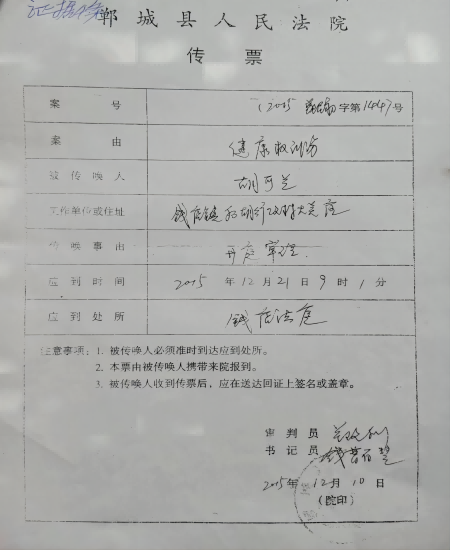 郸城县人民法院
传票
案号 (2015 字第1447号
案由 健康权纠纷
被传唤人 胡可兰
工作单位或住址 钱店镇 胡行政村大关庄
传唤事由 开庭审理
应到时间 2015年12月21日9时1分
应到处所 钱店法庭
注意事项：1. 被传唤人必须准时到达应到处所。
2. 本票由被传唤人携带来院报到。
3. 被传唤人收到传票后，应在送达回证上签名或盖章。
审判员
书记员
2015年12月10日
（院印）